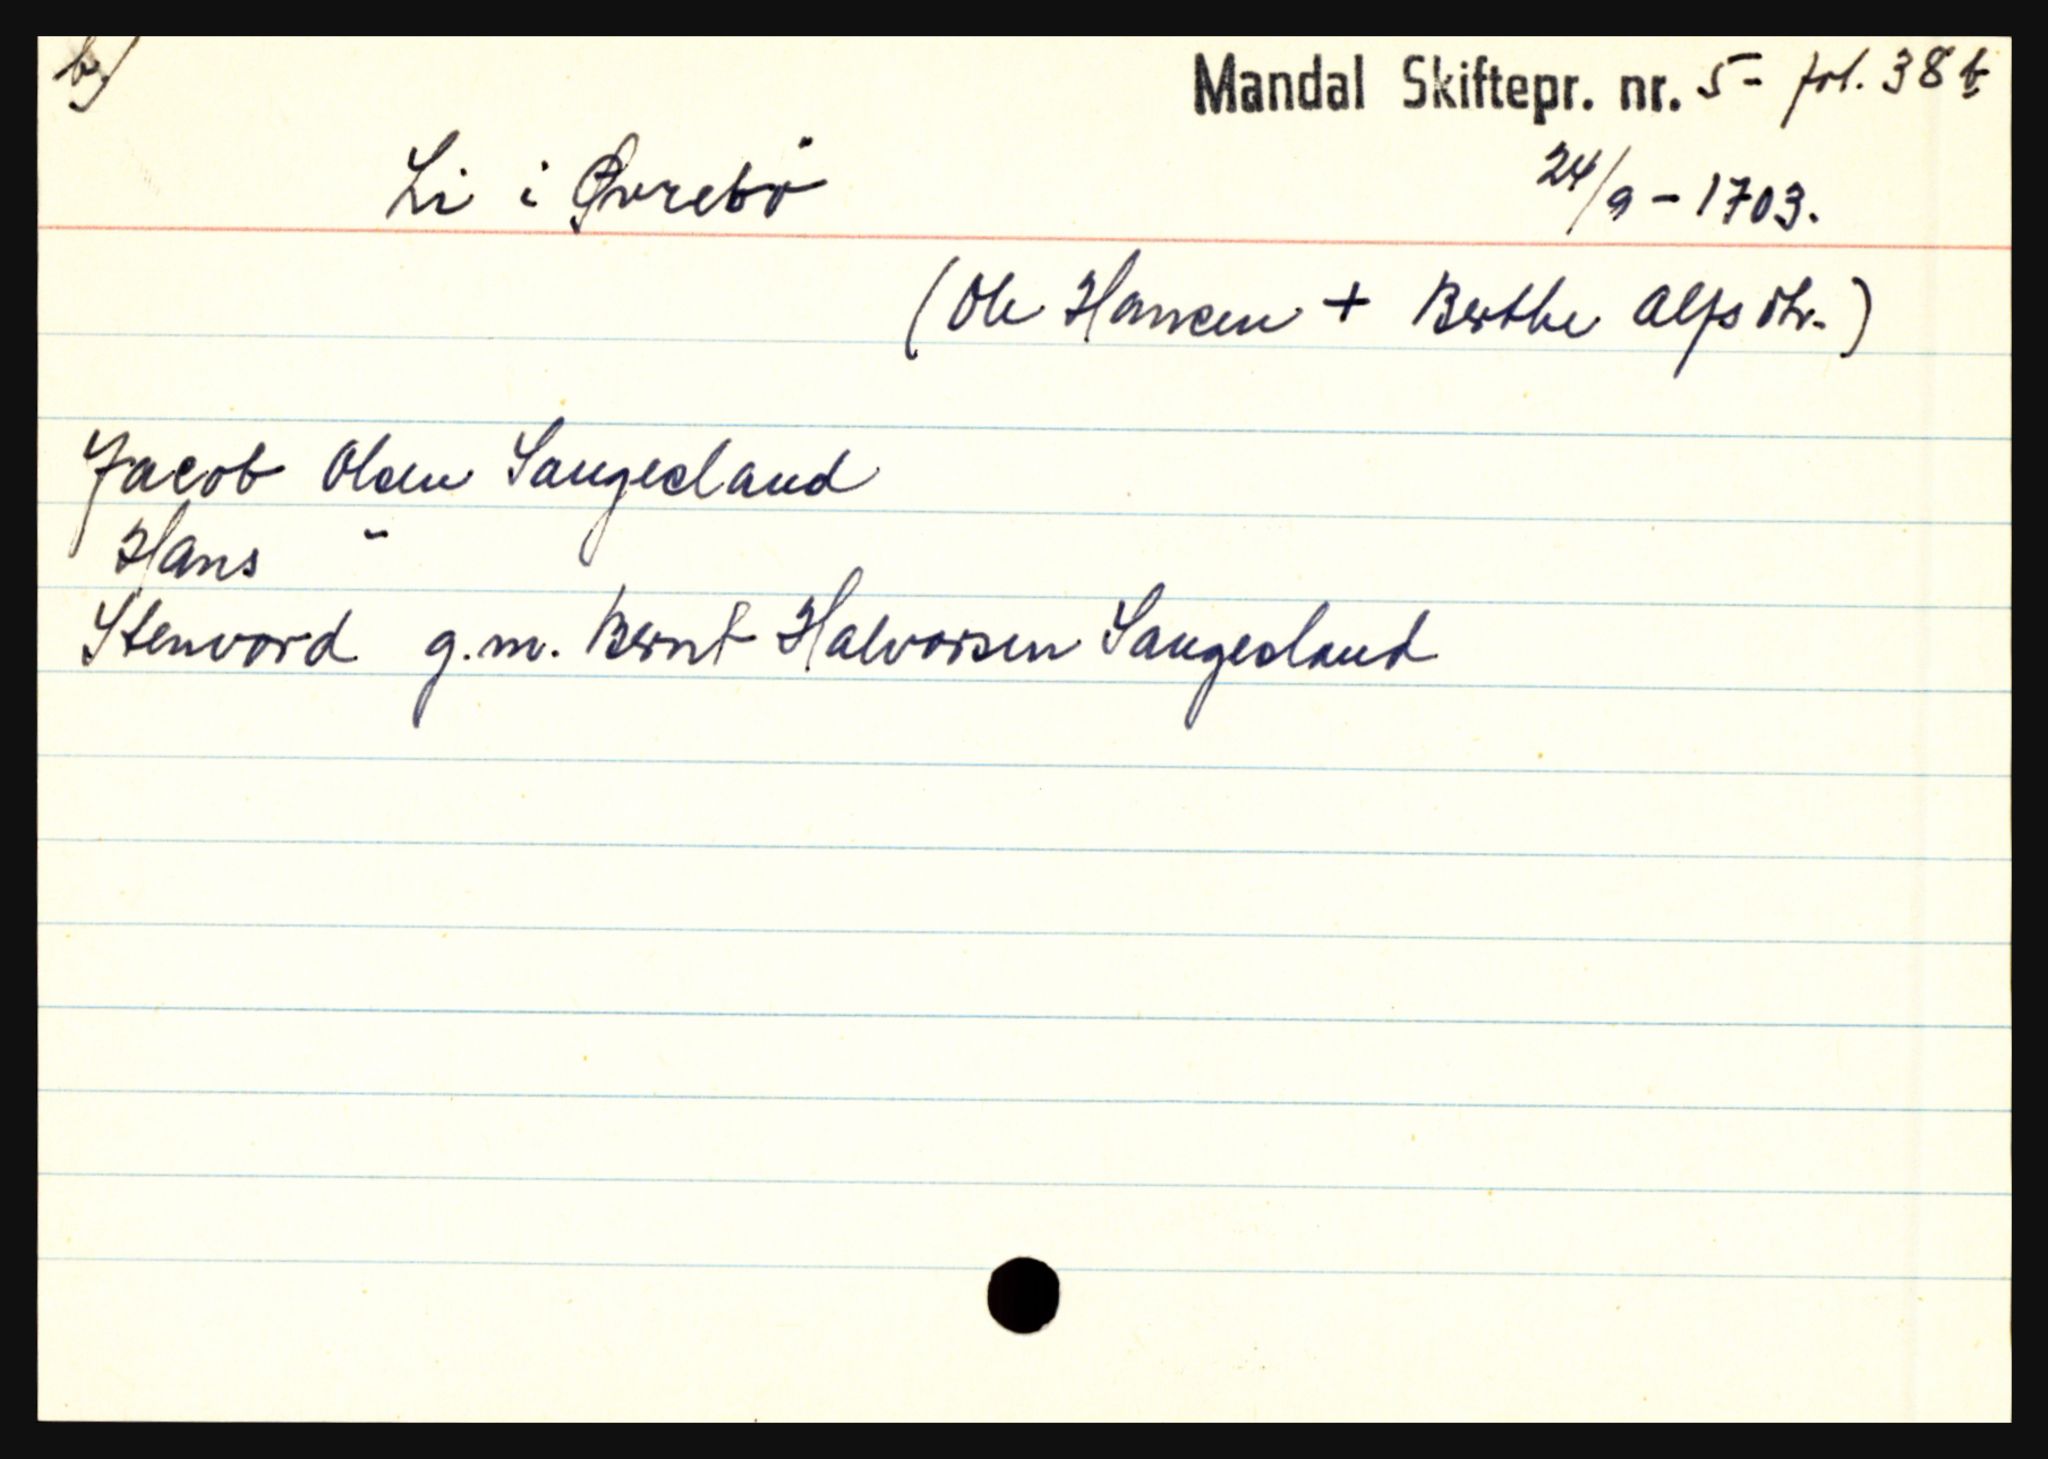 b)
Mandal Skiftepr. nr. 5 - fol. 38 b
Li i Øvrebö
24/9 - 1703.
(Ole Hansen + Berthe Alfsdtr.)
Jacob Olsen Sangesland
Hans "
Stenvord g.m. Bernt Halvorsen Sangesland